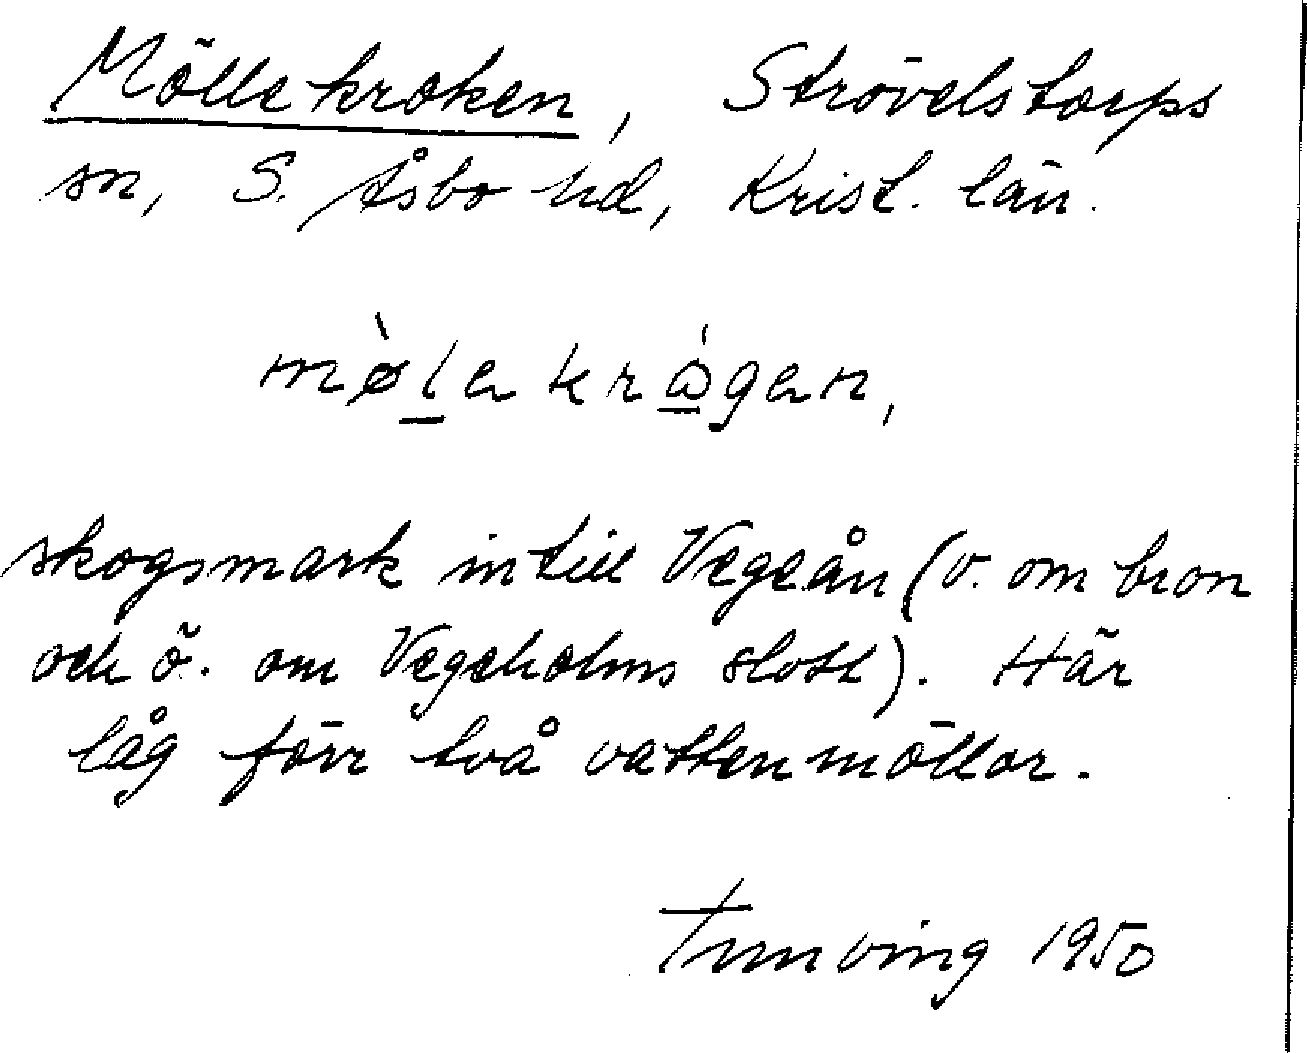 Möllekroken, Strövelstorps
sn, S. Åsbo hd, Krist. län.
mø̀lekrågen,
skogsmark intill Vegeån (v. om bron
och ö. om Vegeholms slott). Här
låg förr två vattenmöllor.
1950